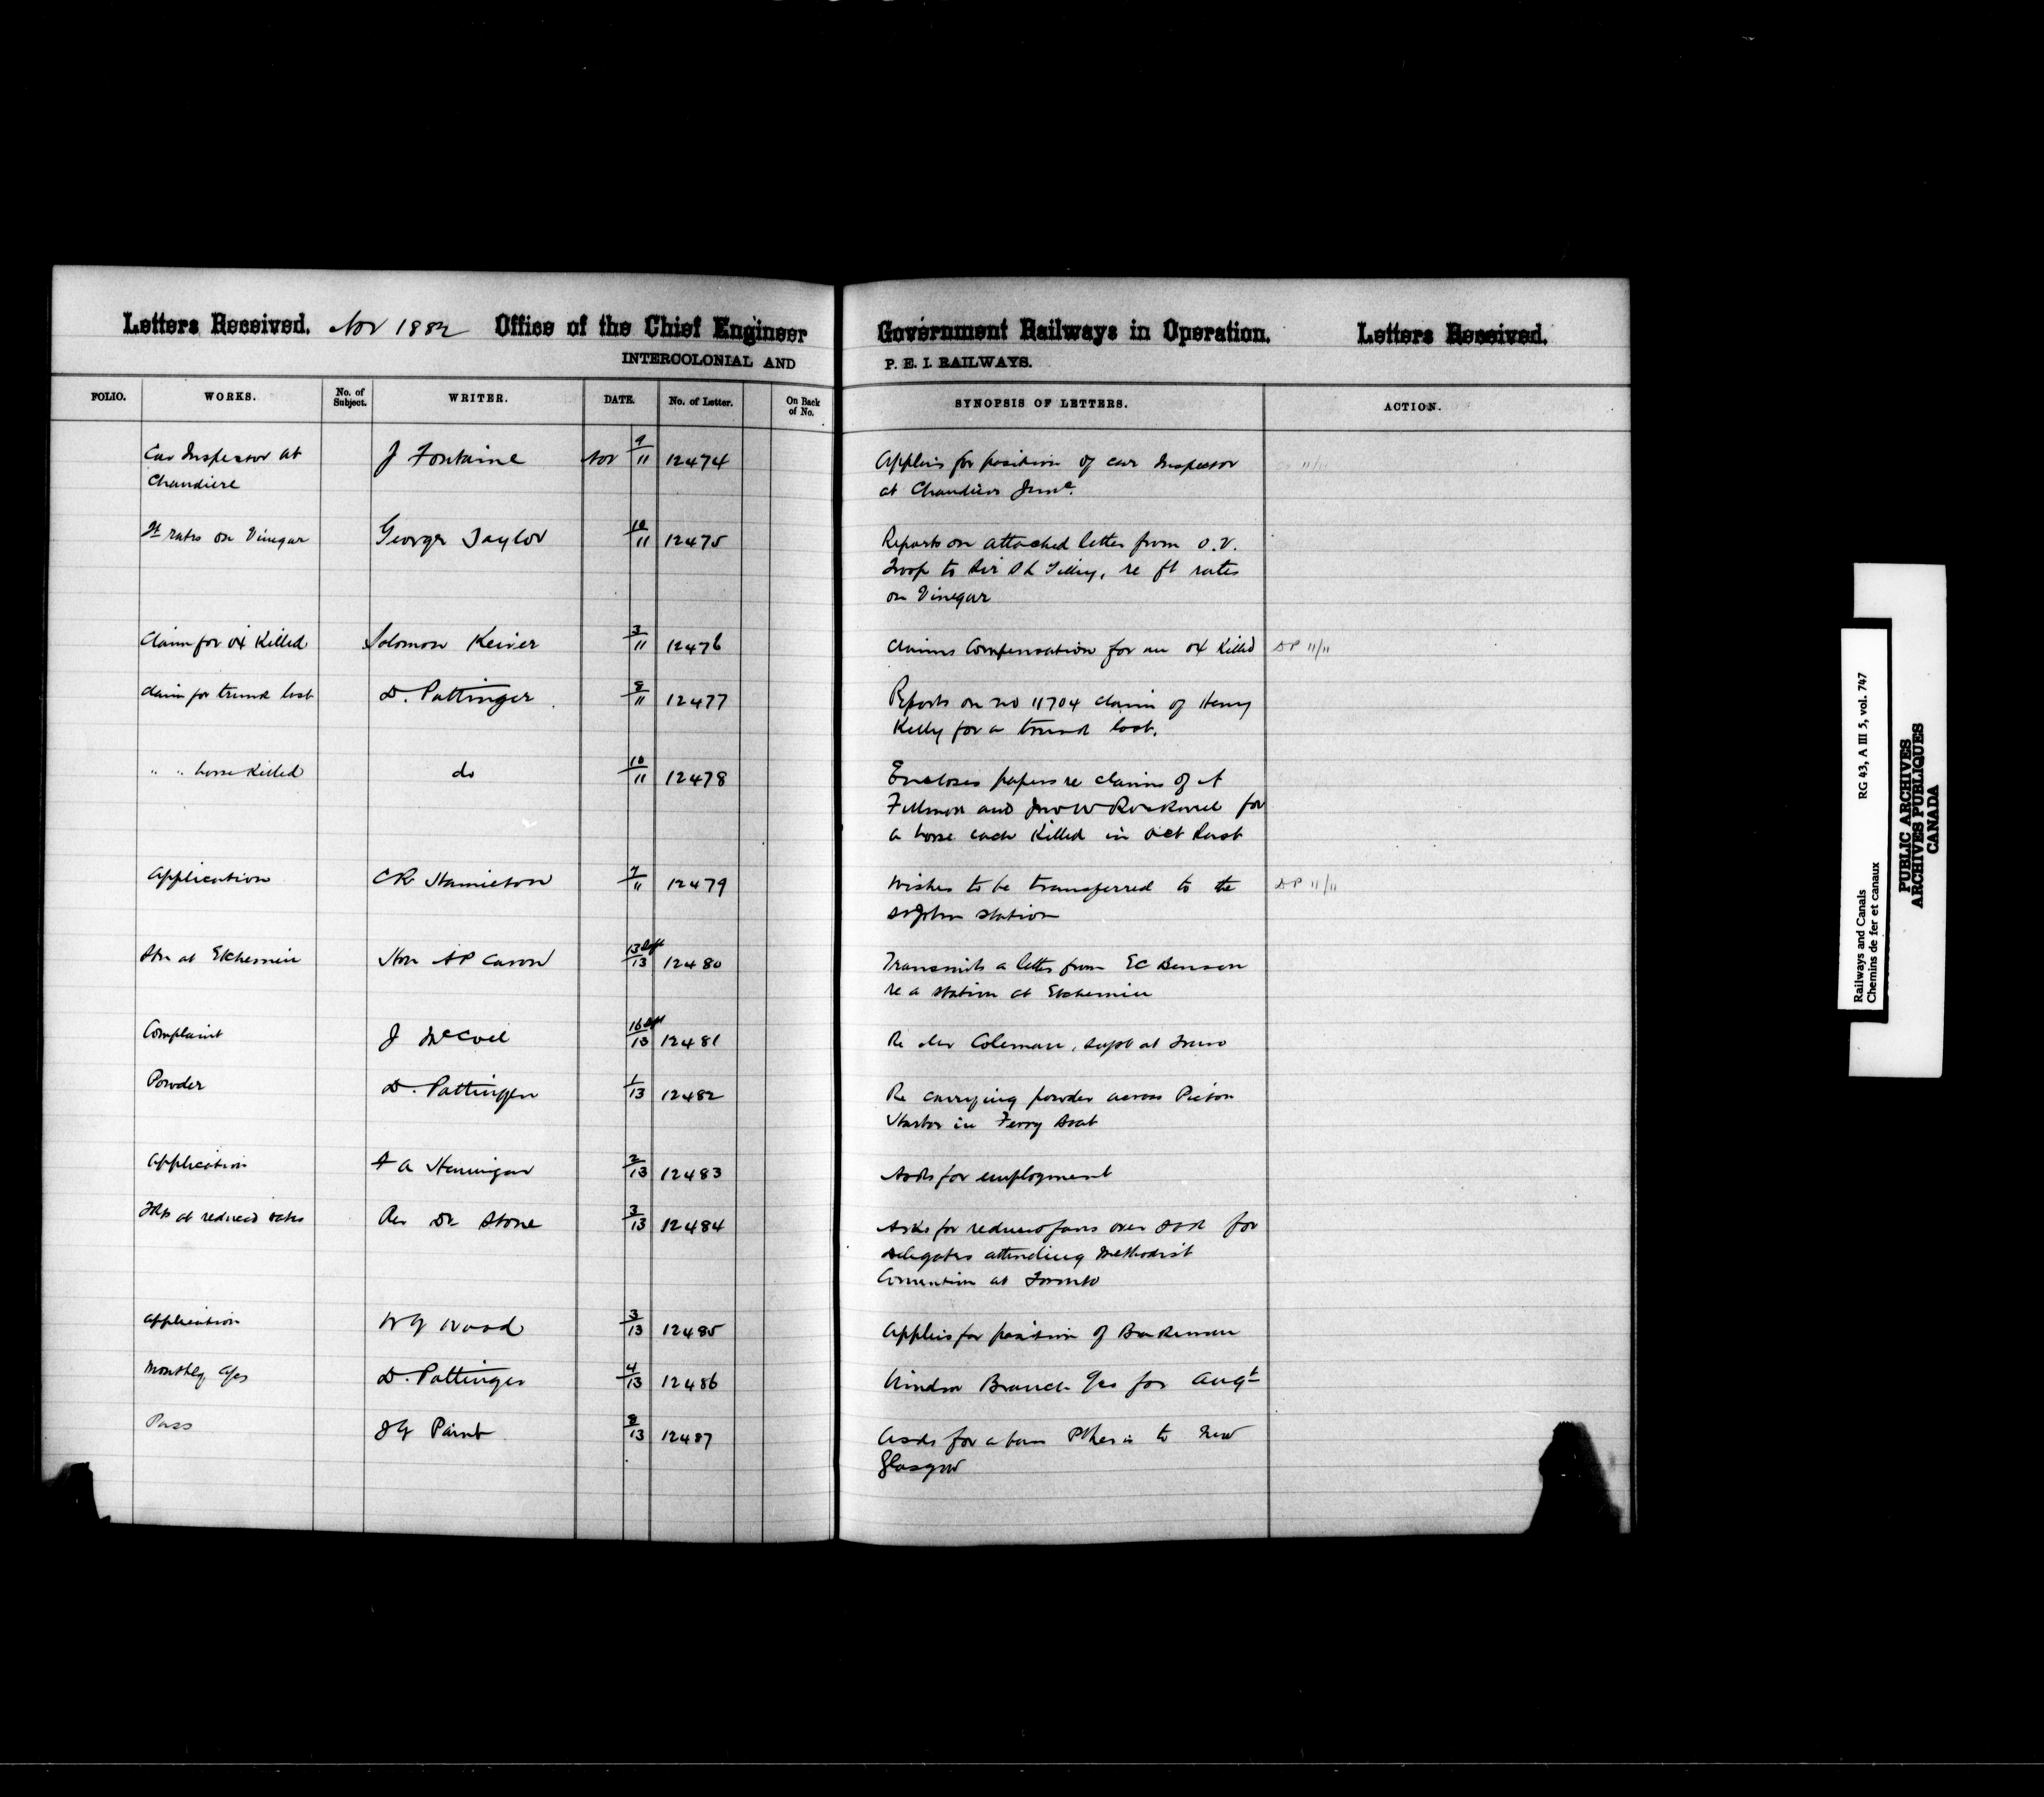 Letters Received. Nov 1882 Office of the Chief Engineer
INTERCOLONIAL AND
Government Railways in Operation. Letters Received.
P. E. I. RAILWAYS.
FOLIO. WORKS. No. of Subject. WRITER. DATE. No. of Letter. On Back of No. SYNOPSIS OF LETTERS. ACTION.
Car Inspector at J Fontaine Nov 9/11 12474 Applies for position of car Inspector 11/11
Chaudiere at Chaudiere Junc.
Ft rates on Vinegar George Taylor 10/11 12475 Reports on attached letter from O.V.
Troop to Sir S L Tilley, re ft rates
on Vinegar
Claim for ox Killed Solomon Keiver 3/11 12476 Claims Compensation for an ox Killed DP 11/11
Claim for trunk lost D. Pottinger 8/11 12477 Reports on no 11704 claim of Henry
Kelly for a trunk lost.
" " horse Killed do 10/11 12478 Encloses papers re claims of A
Fillmore and Jno W for
a horse each Killed in Oct last
Application C R Hamilton 7/11 12479 Wishes to be transferred to the DP 11/11
St John station
Stn at Etchemin Hon A P Caron 13 Sept/13 12480 Transmits a letter from E C Benson
re a station at Etchemin
Complaint J 16 Sept/13 12481 Re Coleman, supt at Truro
Powder D. Pottinger 1/13 12482 Re carrying powder across Pictou
Harbor in Ferry Boat
Application A Hannigan 2/13 12483 Asks for employment
Tkts at reduced rates Rev Dr Stone 3/13 12484 Asks for reduced fares over ICR for
Delegates attending Methodist
Convention at Toronto
Application W G Wood 3/13 12485 Applies for position of Brakeman
Monthly a/cs D. Pottinger 4/13 12486 Windsor Branch a/cs for Augt
Pass Paint 8/13 12487 Asks for a pass to New
Glasgow
Railways and Canals RG 43, A III 5, vol. 747
Chemins de fer et canaux
PUBLIC ARCHIVES
ARCHIVES PUBLIQUES
CANADA